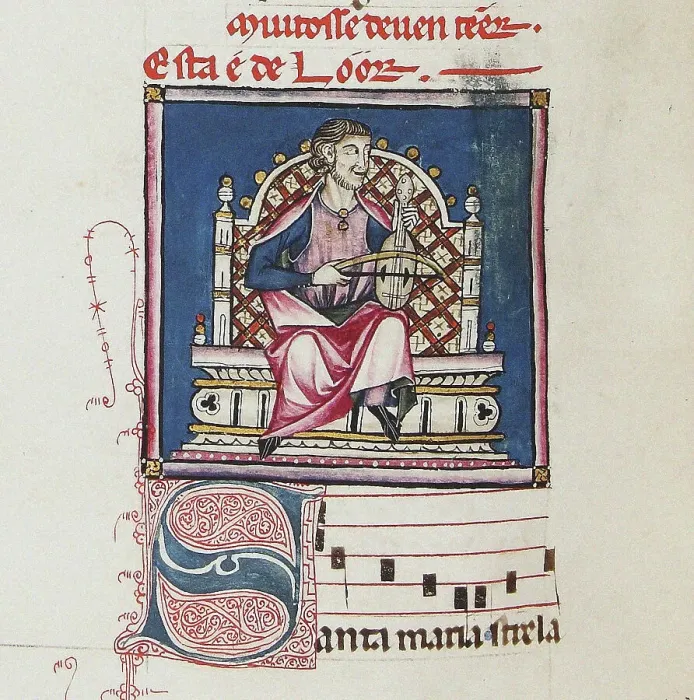 Muitosse deuen téér.
Esta é de Lóor.
Santa maria strela